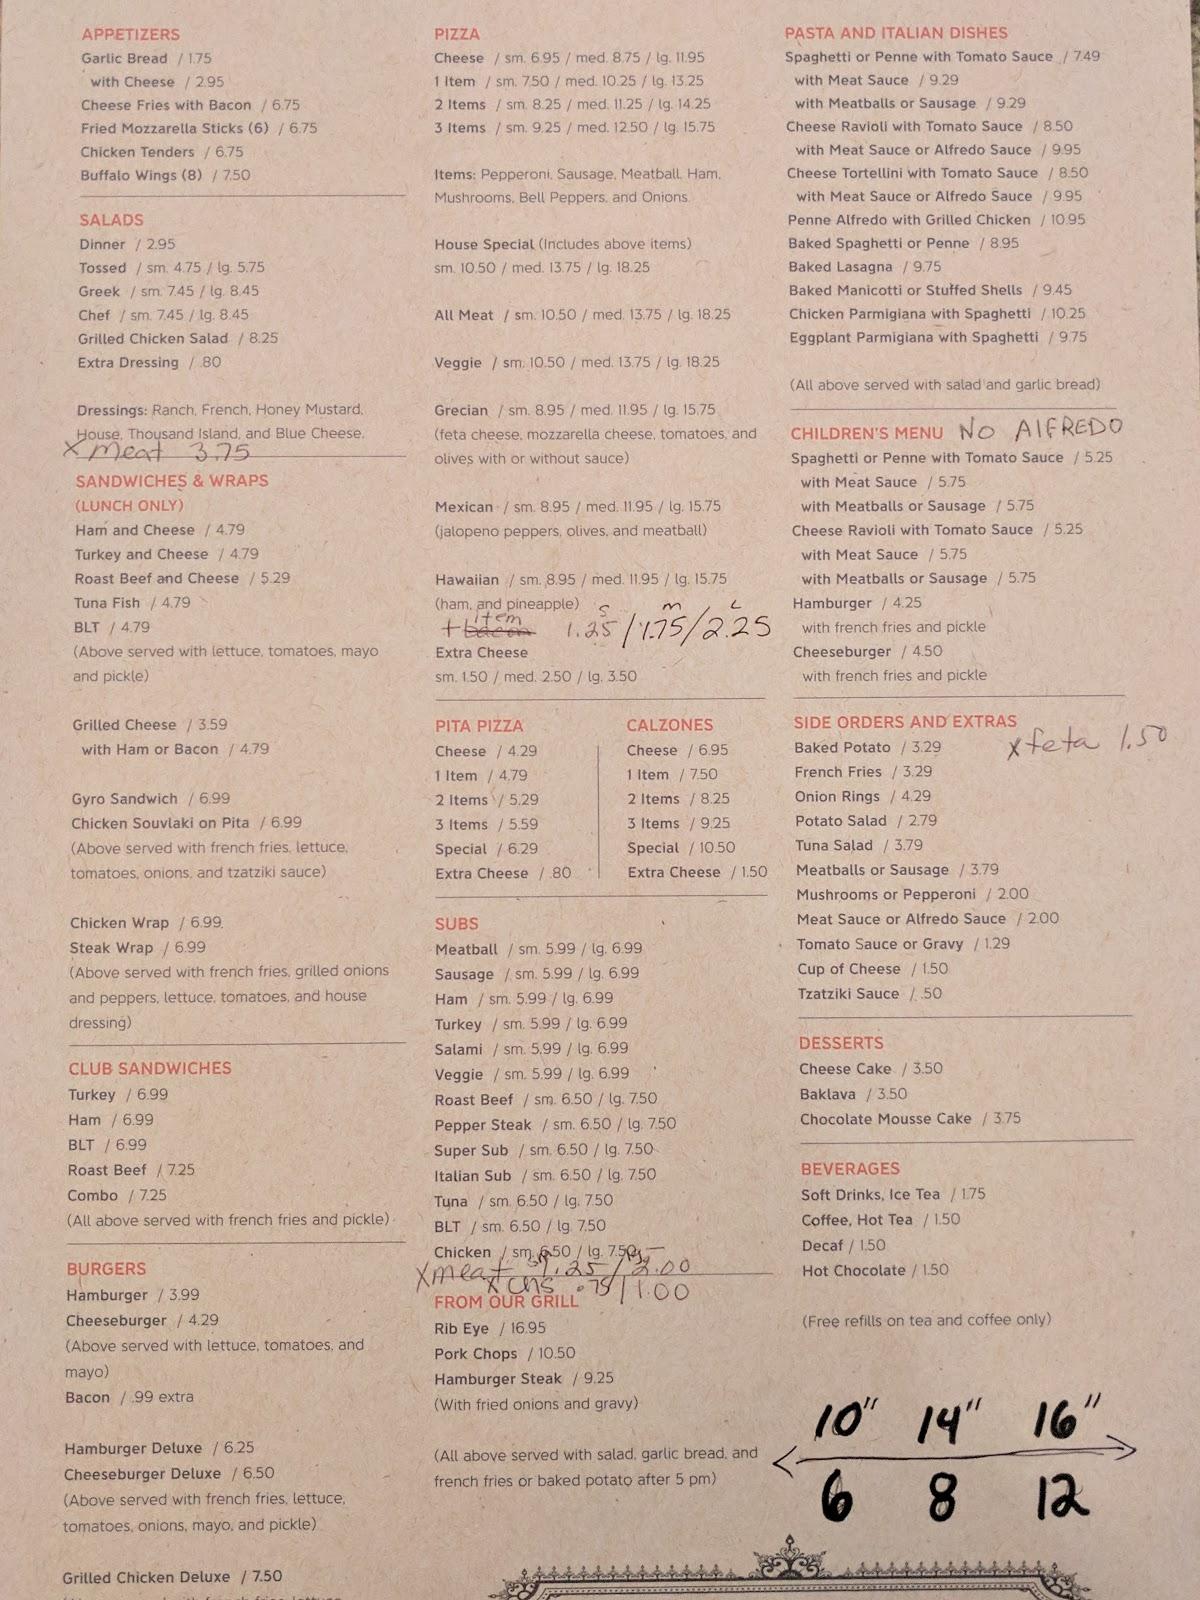 APPETIZERS
Garlic Bread / 1.75
with Cheese / 2.95
Cheese Fries with Bacon / 6.75
Fried Mozzarella Sticks (6) / 6.75
Chicken Tenders / 6.75
Buffalo Wings (8) / 7.50
SALADS
Dinner / 2.95
Tossed / sm. 4.75 / lg. 5.75
Greek / sm. 7.45 / lg. 8.45
Chef / sm. 7.45 / lg. 8.45
Grilled Chicken Salad / 8.25
Extra Dressing / .80
Dressings: Ranch, French, Honey Mustard,
House, Thousand Island, and Blue Cheese.
X meat 3.75
SANDWICHES & WRAPS
(LUNCH ONLY)
Ham and Cheese / 4.79
Turkey and Cheese / 4.79
Roast Beef and Cheese / 5.29
Tuna Fish / 4.79
BLT / 4.79
(Above served with lettuce, tomatoes, mayo
and pickle)
Grilled Cheese / 3.59
with Ham or Bacon / 4.79
Gyro Sandwich / 6.99
Chicken Souvlaki on Pita / 6.99
(Above served with french fries, lettuce,
tomatoes, onions, and tzatziki sauce)
Chicken Wrap / 6.99
Steak Wrap / 6.99
(Above served with french fries, grilled onions
and peppers, lettuce, tomatoes, and house
dressing)
CLUB SANDWICHES
Turkey / 6.99
Ham / 6.99
BLT / 6.99
Roast Beef / 7.25
Combo / 7.25
(All above served with french fries and pickle)
BURGERS
Hamburger / 3.99
Cheeseburger / 4.29
(Above served with lettuce, tomatoes, and
mayo)
Bacon / .99 extra
Hamburger Deluxe / 6.25
Cheeseburger Deluxe / 6.50
(Above served with french fries, lettuce,
tomatoes, onions, mayo, and pickle)
Grilled Chicken Deluxe / 7.50
PIZZA
Cheese / sm. 6.95 / med. 8.75 / lg. 11.95
1 Item / sm. 7.50 / med. 10.25 / lg. 13.25
2 Items / sm. 8.25 / med. 11.25 / lg. 14.25
3 Items / sm. 9.25 / med. 12.50 / lg. 15.75
Items: Pepperoni, Sausage, Meatball, Ham,
Mushrooms, Bell Peppers, and Onions.
House Special (Includes above items)
sm. 10.50 / med. 13.75 / lg. 18.25
All Meat / sm. 10.50 / med. 13.75 / lg. 18.25
Veggie / sm. 10.50 / med. 13.75 / lg. 18.25
Grecian / sm. 8.95 / med. 11.95 / lg. 15.75
(feta cheese, mozzarella cheese, tomatoes, and
olives with or without sauce)
Mexican / sm. 8.95 / med. 11.95 / lg. 15.75
(jalopeno peppers, olives, and meatball)
Hawaiian / sm. 8.95 / med. 11.95 / lg. 15.75
(ham, and pineapple)
item S M L
+ bacon 1.25 / 1.75 / 2.25
Extra Cheese
sm. 1.50 / med. 2.50 / lg. 3.50
PITA PIZZA
Cheese / 4.29
1 Item / 4.79
2 Items / 5.29
3 Items / 5.59
Special / 6.29
Extra Cheese / .80
CALZONES
Cheese / 6.95
1 Item / 7.50
2 Items / 8.25
3 Items / 9.25
Special / 10.50
Extra Cheese / 1.50
SUBS
Meatball / sm. 5.99 / lg. 6.99
Sausage / sm. 5.99 / lg. 6.99
Ham / sm. 5.99 / lg. 6.99
Turkey / sm. 5.99 / lg. 6.99
Salami / sm. 5.99 / lg. 6.99
Veggie / sm. 5.99 / lg. 6.99
Roast Beef / sm. 6.50 / lg. 7.50
Pepper Steak / sm. 6.50 / lg. 7.50
Super Sub / sm. 6.50 / lg. 7.50
Italian Sub / sm. 6.50 / lg. 7.50
Tuna / sm. 6.50 / lg. 7.50
BLT / sm. 6.50 / lg. 7.50
Chicken / sm. 6.50 / lg. 7.50
Xmeat 1.25 / 2.00
X chs .75 / 1.00
FROM OUR GRILL
Rib Eye / 16.95
Pork Chops / 10.50
Hamburger Steak / 9.25
(With fried onions and gravy)
(All above served with salad, garlic bread, and
french fries or baked potato after 5 pm)
PASTA AND ITALIAN DISHES
Spaghetti or Penne with Tomato Sauce / 7.49
with Meat Sauce / 9.29
with Meatballs or Sausage / 9.29
Cheese Ravioli with Tomato Sauce / 8.50
with Meat Sauce or Alfredo Sauce / 9.95
Cheese Tortellini with Tomato Sauce / 8.50
with Meat Sauce or Alfredo Sauce / 9.95
Penne Alfredo with Grilled Chicken / 10.95
Baked Spaghetti or Penne / 8.95
Baked Lasagna / 9.75
Baked Manicotti or Stuffed Shells / 9.45
Chicken Parmigiana with Spaghetti / 10.25
Eggplant Parmigiana with Spaghetti / 9.75
(All above served with salad and garlic bread)
CHILDREN'S MENU NO AlFREDO
Spaghetti or Penne with Tomato Sauce / 5.25
with Meat Sauce / 5.75
with Meatballs or Sausage / 5.75
Cheese Ravioli with Tomato Sauce / 5.25
with Meat Sauce / 5.75
with Meatballs or Sausage / 5.75
Hamburger / 4.25
with french fries and pickle
Cheeseburger / 4.50
with french fries and pickle
SIDE ORDERS AND EXTRAS
x feta 1.50
Baked Potato / 3.29
French Fries / 3.29
Onion Rings / 4.29
Potato Salad / 2.79
Tuna Salad / 3.79
Meatballs or Sausage / 3.79
Mushrooms or Pepperoni / 2.00
Meat Sauce or Alfredo Sauce / 2.00
Tomato Sauce or Gravy / 1.29
Cup of Cheese / 1.50
Tzatziki Sauce / .50
DESSERTS
Cheese Cake / 3.50
Baklava / 3.50
Chocolate Mousse Cake / 3.75
BEVERAGES
Soft Drinks, Ice Tea / 1.75
Coffee, Hot Tea / 1.50
Decaf / 1.50
Hot Chocolate / 1.50
(Free refills on tea and coffee only)
10" 14" 16"
6 8 12